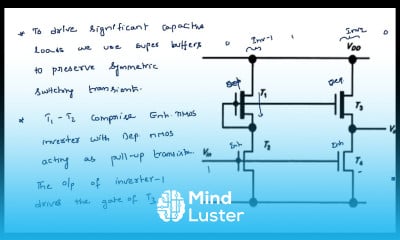 * To drive significant capacitive
loads we use super buffers
to preserve symmetric
switching transients.
* T1 - T2 comprise Enh. nMOS
inverter with Dep. nMOS
acting as pull-up transistor
The o/p of inverter-1
drives the gate of T3
0 Inv-1 1
Inv2 0
VDD
Dep
T1
Dep
T3
Vin
1
Enh
T2
Enh
T4
V
Mind
Luster